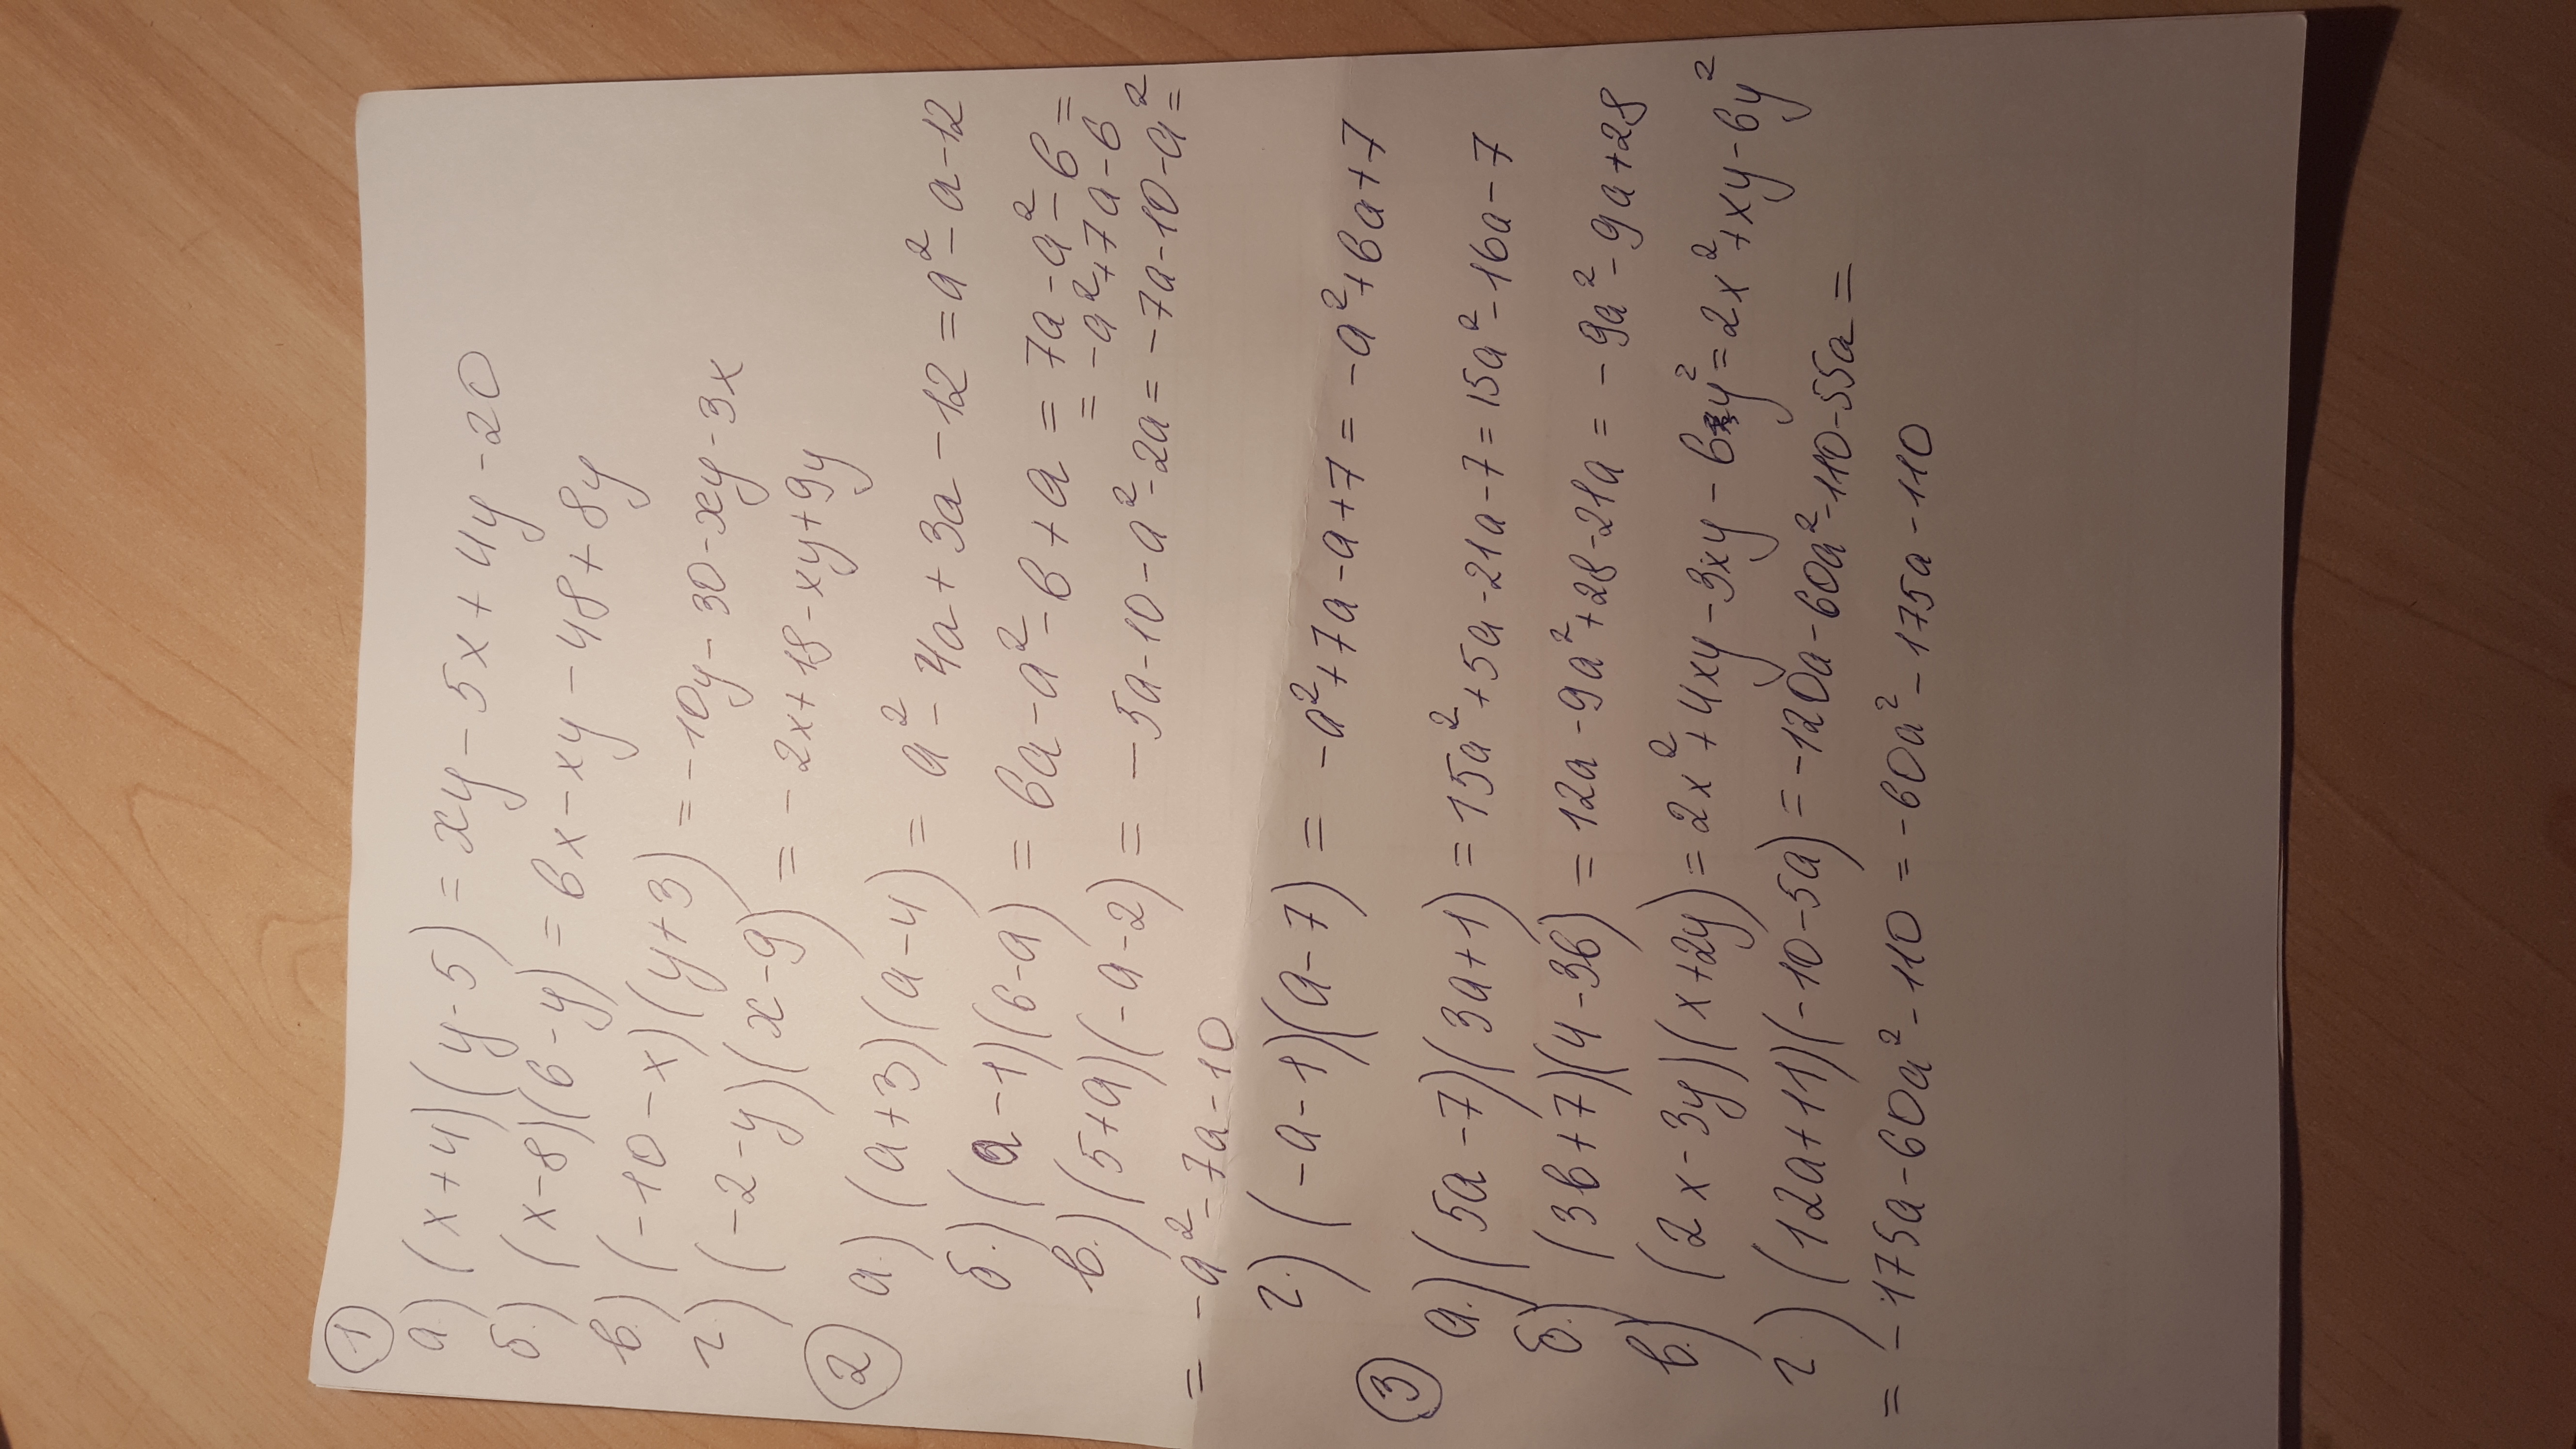 1
а.) (x+4)(y-5) = xy-5x+4y-20
б.) (x-8)(6-y) = 6x-xy-48+8y
в.) (-10-x)(y+3) = -10y-30-xy-3x
г.) (-2-y)(x-9) = -2x+18-xy+9y
2 а.) (a+3)(a-4) = a²-4a+3a-12=a²-a-12
б.) (a-1)(6-a) = 6a-a²-6+a = 7a-a²-6=
= -a²+7a-6
в.) (5+a)(-a-2) = -5a-10-a²-2a=-7a-10-a²=
= -a²-7a-10
г.) (-a-1)(a-7) = -a²+7a-a+7 = -a²+6a+7
3 а.) (5a-7)(3a+1) = 15a²+5a-21a-7=15a²-16a-7
б.) (3b+7)(4-3b) = 12a-9a²+28-21a = -9a²-9a+28
в.) (2x-3y)(x+2y) = 2x²+4xy-3xy-6y²=2x²+xy-6y²
г.) (12a+11)(-10-5a) = -120a-60a²-110-55a=
= -175a-60a²-110 = -60a²-175a-110